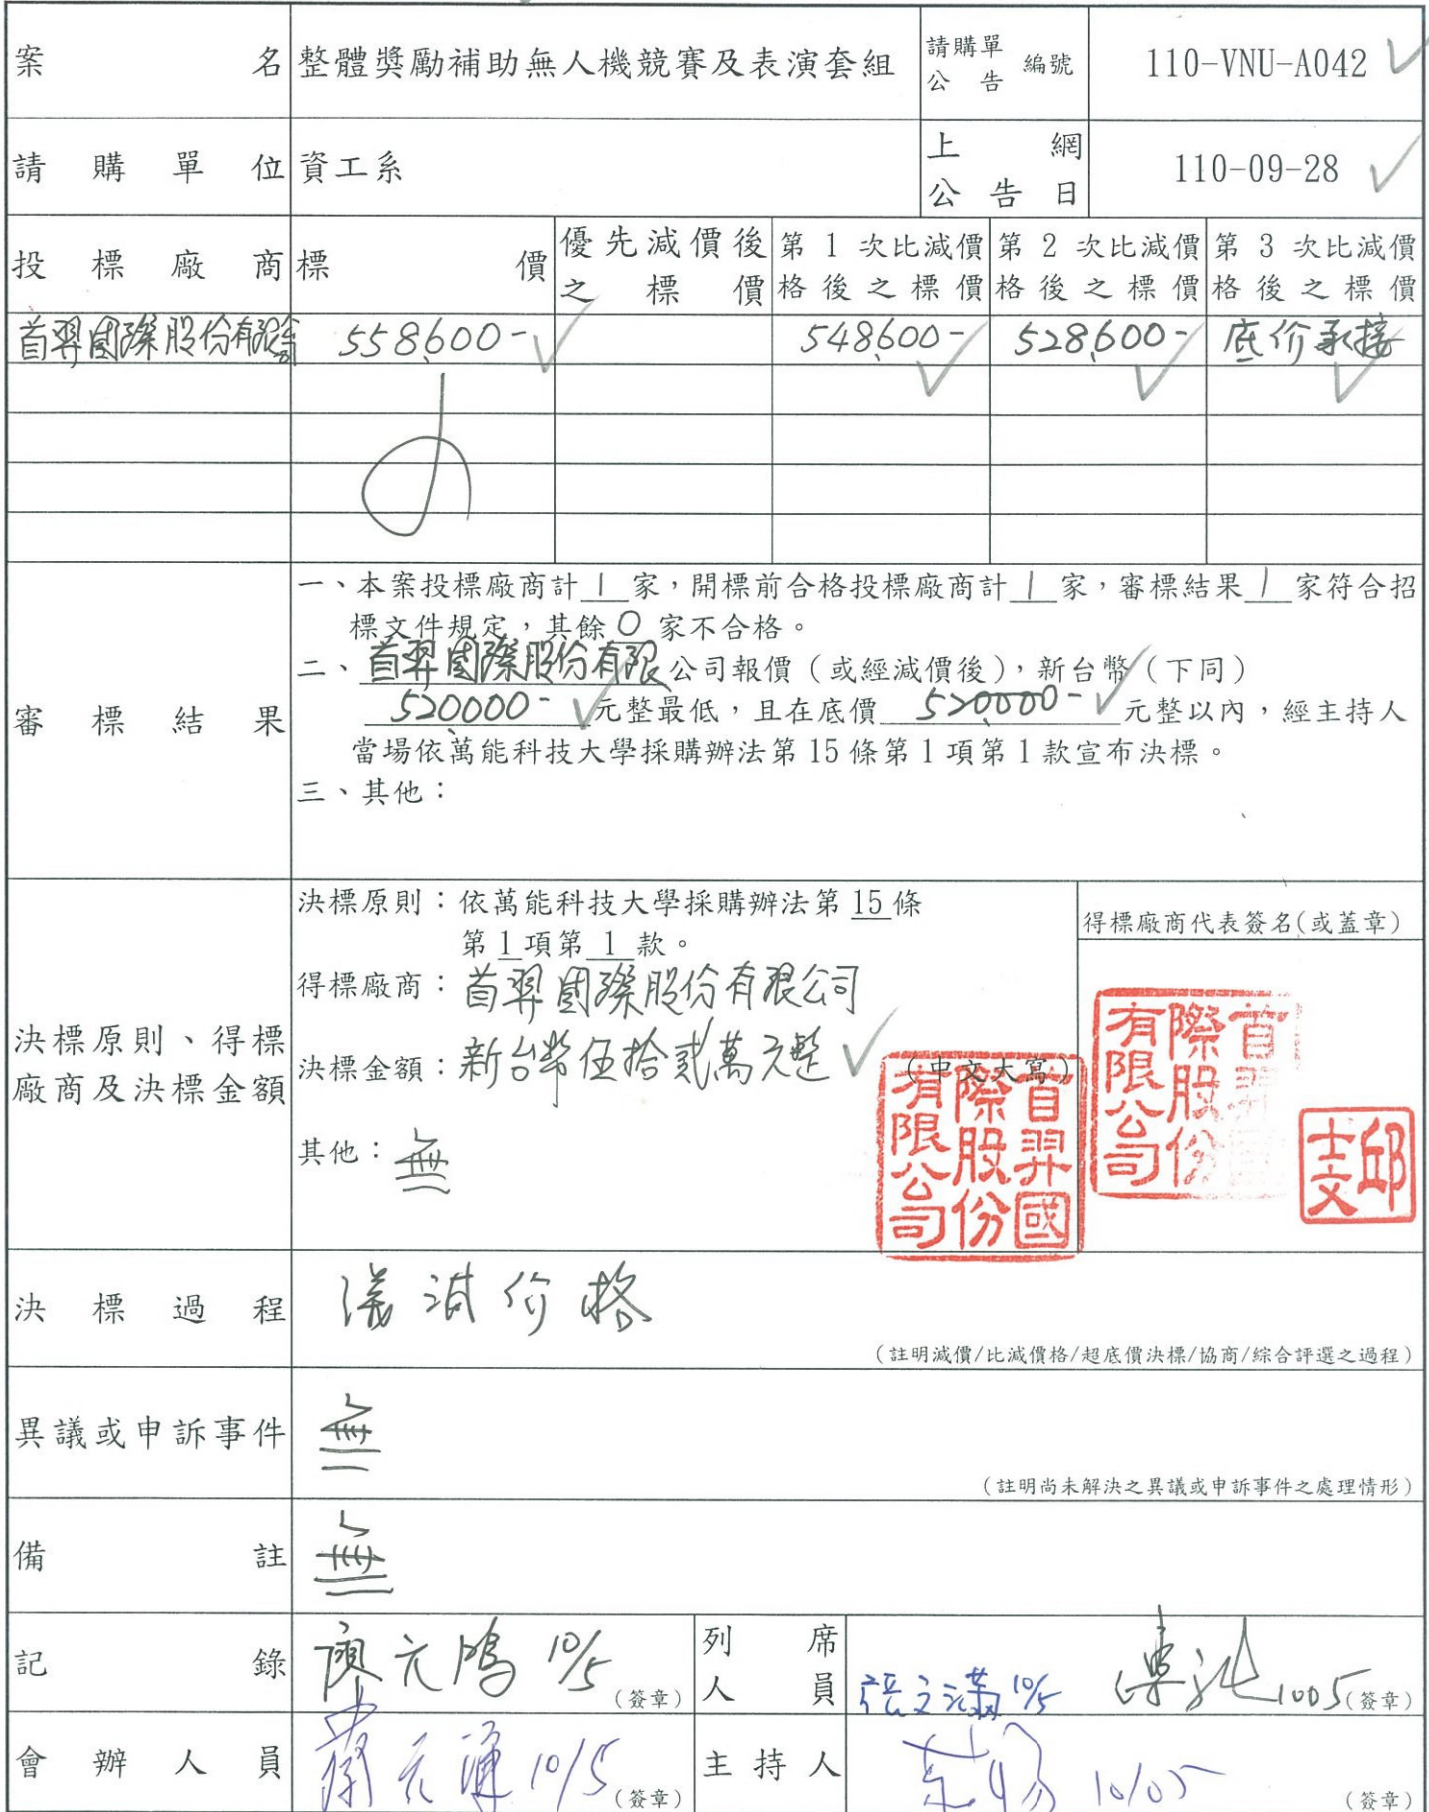 案名 整體獎勵補助無人機競賽及表演套組 請購單公告編號 110-VNU-A042
請購單位 資工系 上網公告日 110-09-28
投標廠商 標價 優先減價後之標價 第1次比減價格後之標價 第2次比減價格後之標價 第3次比減價格後之標價
首羿國際股份有限公司 558,600- 548,600- 528,600- 底价承接
審標結果
一、本案投標廠商計 1 家，開標前合格投標廠商計 1 家，審標結果 1 家符合招
標文件規定，其餘 0 家不合格。
二、首羿國際股份有限公司報價（或經減價後），新台幣（下同）
520,000- 元整最低，且在底價 520,000- 元整以內，經主持人
當場依萬能科技大學採購辦法第15條第1項第1款宣布決標。
三、其他：
決標原則、得標廠商及決標金額
決標原則：依萬能科技大學採購辦法第 15 條
第 1 項第 1 款。
得標廠商：首羿國際股份有限公司
決標金額：新台幣伍拾貳萬元整 （中文大寫）
其他：無
得標廠商代表簽名(或蓋章)
首羿國際股份有限公司
首羿國際股份有限公司
邱士文
決標過程 議減价格
（註明減價/比減價格/超底價決標/協商/綜合評選之過程）
異議或申訴事件 無
（註明尚未解決之異議或申訴事件之處理情形）
備註 無
記錄 10/5 （簽章） 列席人員 10/5 1005 （簽章）
會辦人員 10/5 （簽章） 主持人 10/05 （簽章）